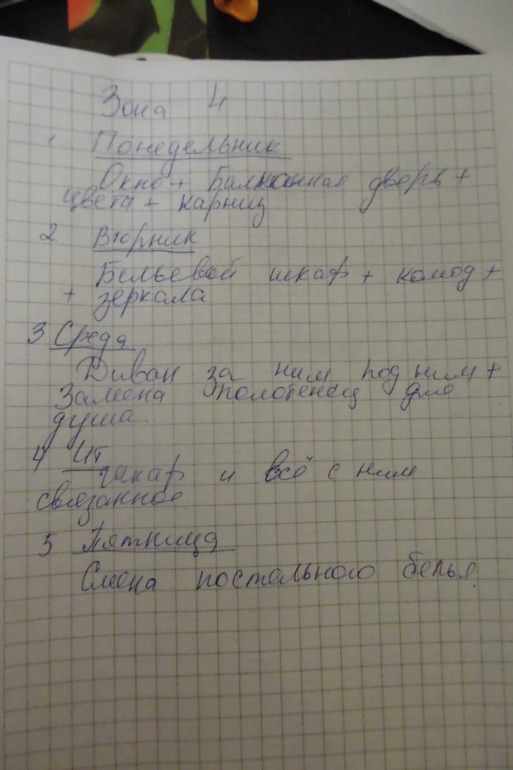 Зона 4
1 Понедельник
Окно + Балконная дверь +
цвета + карниз
2 Вторник
Бельевой шкаф + комод +
+ зеркала
3 Среда
Диван за ним под ним +
Замена полотенец для
душа.
4 Чт
шкаф и всё с ним
связанное
5 Пятница
Смена постельного белья.